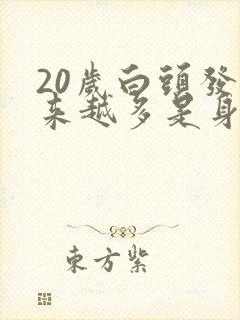 20歲白頭發
來越多是身
東方紫